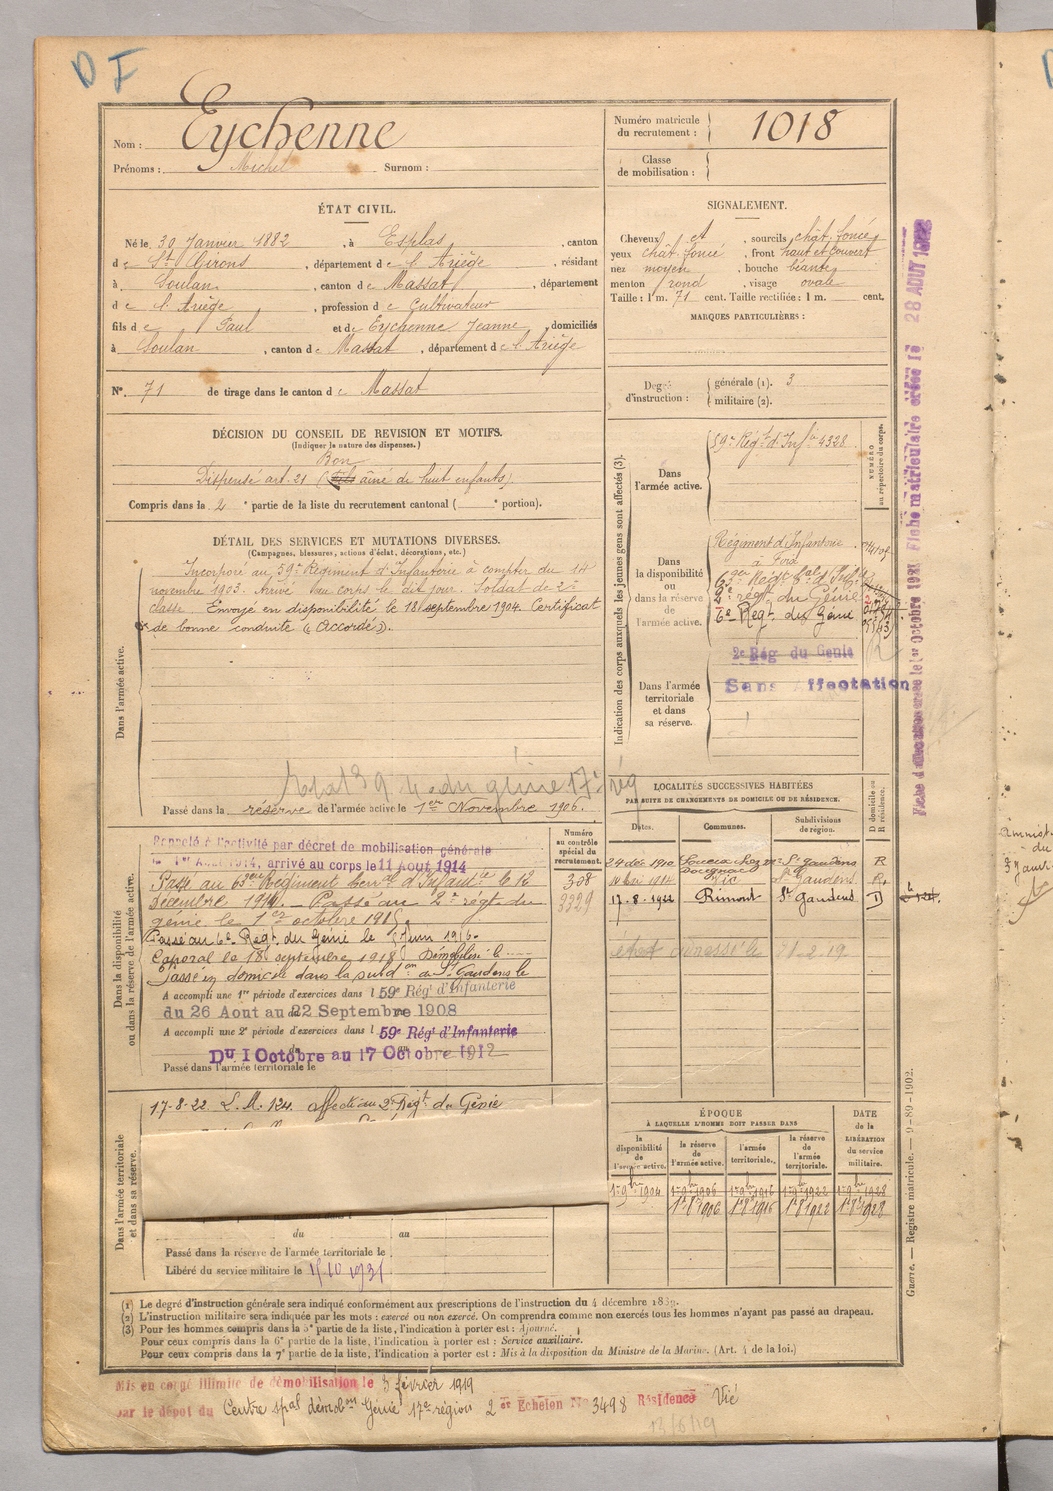 D F
Nom : Eychenne
Prénoms : Michel Surnom :
Numéro matricule
du recrutement : 1018
Classe
de mobilisation :
ÉTAT CIVIL.
Né le 30 Janvier 1882, à Esplas, canton
de St Girons, département de l'Ariège, résidant
à Soulan, canton de Massat, département
de l'Ariège, profession de Cultivateur
fils de Paul et de Eychenne Jeanne, domiciliés
à Soulan, canton de Massat, département de l'Ariège
N° 71 de tirage dans le canton de Massat
SIGNALEMENT.
Cheveux et, sourcils chât. foncé,
yeux chât. foncé, front haut et couvert
nez moyen, bouche béante,
menton rond, visage ovale
Taille : 1 m. 71 cent. Taille rectifiée : 1 m. cent.
MARQUES PARTICULIÈRES :
Degré
d'instruction :
générale (1). 3
militaire (2).
DÉCISION DU CONSEIL DE REVISION ET MOTIFS.
(Indiquer la nature des dispenses.)
Bon
Dispensé art. 21 (fils aîné de huit enfants)
Compris dans la 2e partie de la liste du recrutement cantonal ( e portion).
DÉTAIL DES SERVICES ET MUTATIONS DIVERSES.
(Campagnes, blessures, actions d'éclat, décorations, etc.)
Dans l'armée active.
Incorporé au 59e Régiment d'Infanterie à compter du 14
novembre 1903. Arrivé au corps le dit jour. Soldat de 2e
classe. Envoyé en disponibilité le 18 septembre 1904. Certificat
de bonne conduite "Accordé".
du génie 17e rég
Passé dans la réserve de l'armée active le 1er Novembre 1906.
Indication des corps auxquels les jeunes gens sont affectés (3).
NUMÉRO
au répertoire du corps.
Dans
l'armée active.
59e Régt d'Infie 4328
Dans
la disponibilité
ou
dans la réserve
de
l'armée active.
Régiment d'Infanterie
à Foix
2e régt du Génie
6e Régt du Génie
2e Rég du Genie
Dans l'armée
territoriale
et dans
sa réserve.
Sans Affectation
LOCALITÉS SUCCESSIVES HABITÉES
PAR SUITE DE CHANGEMENTS DE DOMICILE OU DE RÉSIDENCE.
D domicile ou
R résidence.
Dates.
Communes.
Subdivisions
de région.
24 déc. 1910 St Gaudens R
14 Mai 1914 Vic St Gaudens R.
17-8-1922 Rimont St Gaudens D
Dans la disponibilité
ou dans la réserve de l'armée active.
Numéro
au contrôle
spécial du
recrutement.
308
3329
Rappelé à l'activité par décret de mobilisation générale
du 1er Aout 1914, arrivé au corps le 11 Aout 1914
Passé au 69eme Régiment d'Infantie le 12
Décembre 1914. - Passé au 2e régt du
génie le 1er octobre 1915.
Passé au 6e Régt du Génie le 5 Juin 1916.
Caporal le 18 septembre 1918 Démobilisé le
Passé en domicile dans la subdon de St Gaudens le
A accompli une 1re période d'exercices dans l 59e Régt d'Infanterie
du 26 Aout au 22 Septembre 1908
A accompli une 2e période d'exercices dans l 59e Régt d'Infanterie
Du 1 Octobre au 17 Octobre 1912
Passé dans l'armée territoriale le
Dans l'armée territoriale
et dans sa réserve.
17-8-22 affecté au 2e Régt du Génie
du au
Passé dans la réserve de l'armée territoriale le
Libéré du service militaire le 15 10 1931
ÉPOQUE
À LAQUELLE L'HOMME DOIT PASSER DANS
DATE
de la
LIBÉRATION
du service
militaire.
la
disponibilité
de
l'armée active.
la réserve
de
l'armée active.
l'armée
territoriale.
la réserve
de
l'armée
territoriale.
1er 9bre 1904 1er 9bre 1906 1er 9bre 1916 1er 9bre 1922 1er 9bre 1928
1er 8bre 1906 1er 8bre 1916 1er 8bre 1922 1er 8bre 1928
(1) Le degré d'instruction générale sera indiqué conformément aux prescriptions de l'instruction du 4 décembre 1889.
(2) L'instruction militaire sera indiquée par les mots : exercé ou non exercé. On comprendra comme non exercés tous les hommes n'ayant pas passé au drapeau.
(3) Pour les hommes compris dans la 5e partie de la liste, l'indication à porter est : Ajourné.
Pour ceux compris dans la 6e partie de la liste, l'indication à porter est : Service auxiliaire.
Pour ceux compris dans la 7e partie de la liste, l'indication à porter est : Mis à la disposition du Ministre de la Marine. (Art. 4 de la loi.)
Mis en congé illimité de démobilisation le 3 février 1919
par le dépôt du Centre spal démobon Génie 17e région 2 er Echelon No 3498 Résidence Vic
13/6/19
Guerre. — Registre matricule. — 9-89-1902.